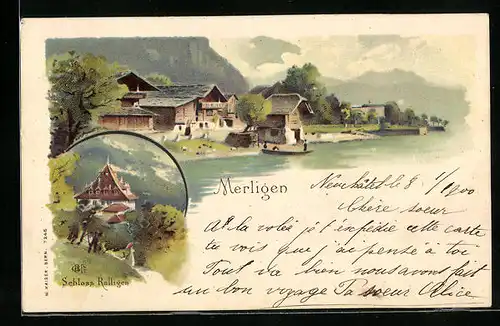 Merligen
Neuchâtel le 8/1/1900
Chère soeur
A la volée je t'expédie cette carte
tu vois que j'ai pensé à toi
Tout va bien nous avons fait
un bon voyage Ta soeur Alice
Schloss Ralligen
W. KAISER, BERN. 7346